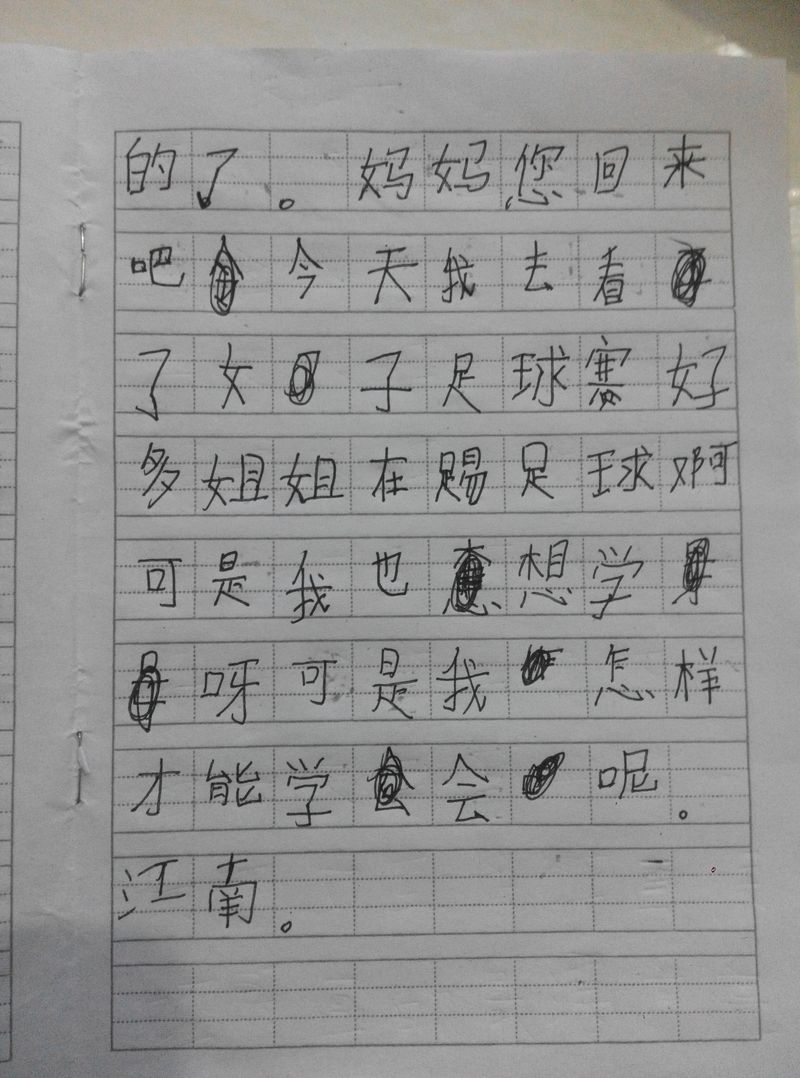 的了。妈妈您回来
吧今天我去看
了女子足球赛好
多姐姐在踢足球啊
可是我也想学
呀可是我怎样
才能学会呢。
江南。